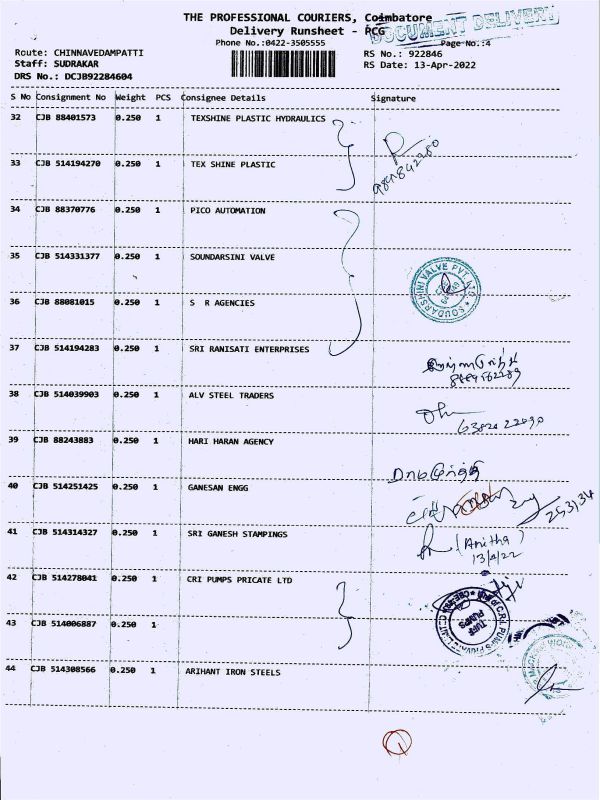 THE PROFESSIONAL COURIERS, Coimbatore
Delivery Runsheet - PCG
DOCUMENT DELIVERY
Phone No.:0422-3505555
Page No.:4
Route: CHINNAVEDAMPATTI
RS No.: 922846
Staff: SUDRAKAR
RS Date: 13-Apr-2022
DRS No.: DCJB92284604
S No Consignment No Weight PCS Consignee Details Signature
32 CJB 88401573 0.250 1 TEXSHINE PLASTIC HYDRAULICS
33 CJB 514194270 0.250 1 TEX SHINE PLASTIC
34 CJB 88370776 0.250 1 PICO AUTOMATION
35 CJB 514331377 0.250 1 SOUNDARSINI VALVE
36 CJB 88081015 0.250 1 S R AGENCIES
37 CJB 514194283 0.250 1 SRI RANISATI ENTERPRISES
38 CJB 514039903 0.250 1 ALV STEEL TRADERS
39 CJB 88243883 0.250 1 HARI HARAN AGENCY
40 CJB 514251425 0.250 1 GANESAN ENGG
253134
41 CJB 514314327 0.250 1 SRI GANESH STAMPINGS
(Anitha)
13/4/22
42 CJB 514278041 0.250 1 CRI PUMPS PRICATE LTD
TUFF
PUMPS
43 CJB 514006887 0.250 1
44 CJB 514308566 0.250 1 ARIHANT IRON STEELS